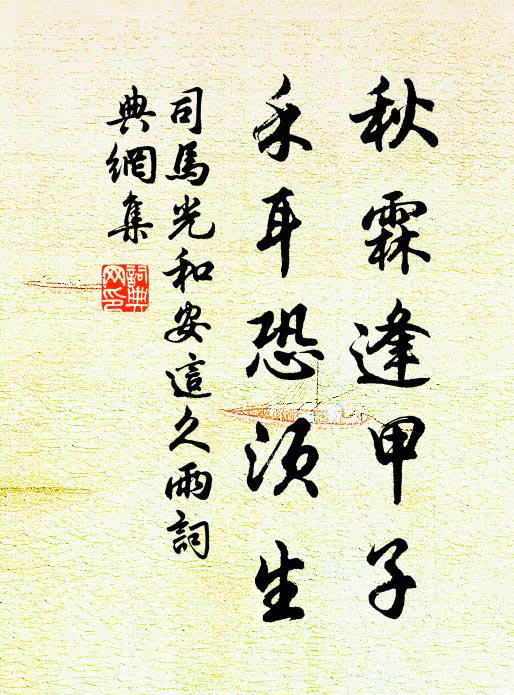 秋霖逢甲子
禾耳恐須生
司馬光和安這久雨詞
典網集
詞典
网印